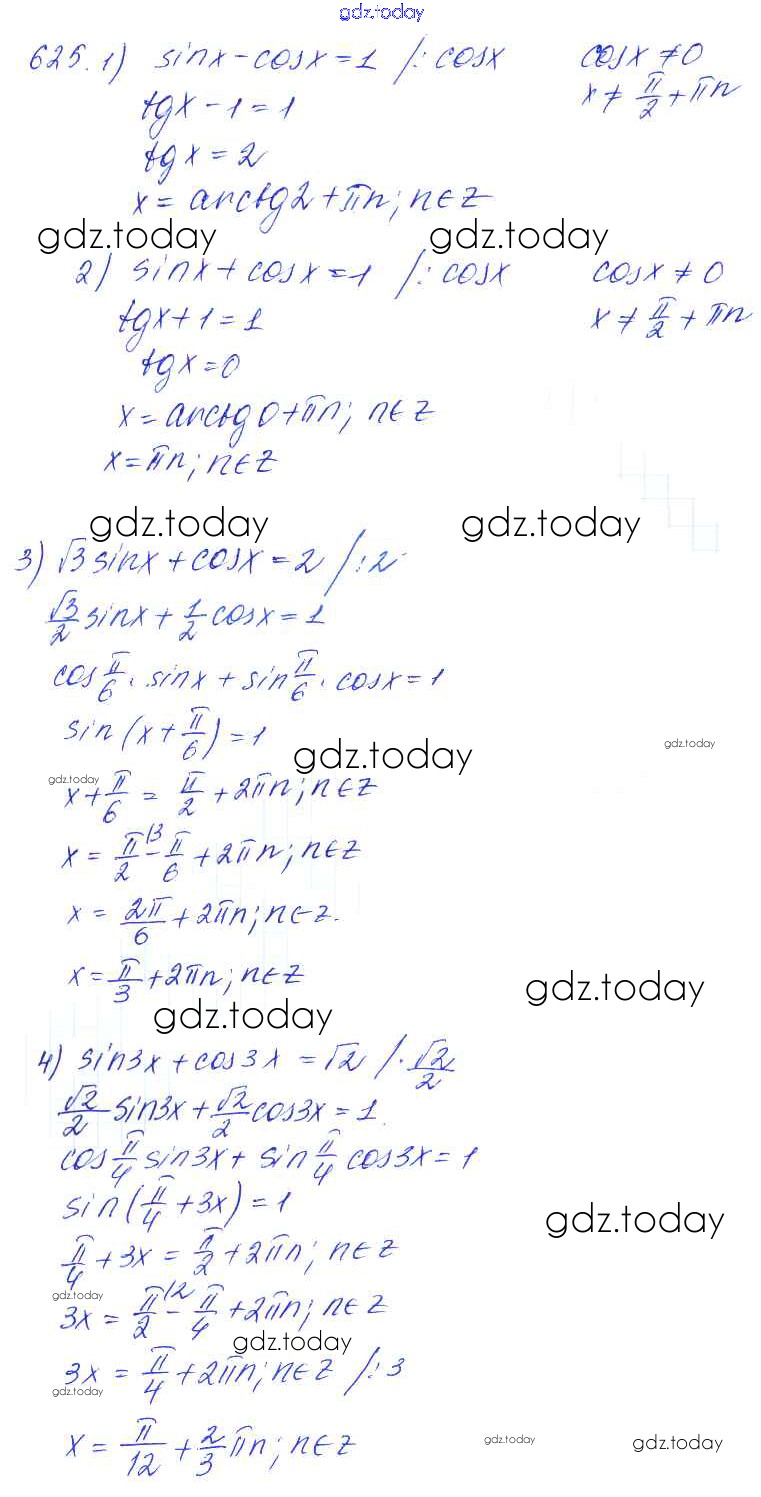 gdz.today
625. 1) sinx - cosx = 1 /: cosx cosx ≠ 0
tgx - 1 = 1 x ≠ π/2 + πn
tgx = 2
x = arctg2 + πn; n∈Z
gdz.today gdz.today
2) sinx + cosx = 1 /: cosx cosx ≠ 0
tgx + 1 = 1 x ≠ π/2 + πn
tgx = 0
x = arctg0 + πn; n∈Z
x = πn; n∈Z
gdz.today gdz.today
3) √3 sinx + cosx = 2 /: 2
√3/2 sinx + 1/2 cosx = 1
cos π/6 · sinx + sin π/6 · cosx = 1
sin(x + π/6) = 1
gdz.today gdz.today
gdz.today
x + π/6 = π/2 + 2πn; n∈Z
x = π/2 \3 - π/6 + 2πn; n∈Z
x = 2π/6 + 2πn; n∈Z.
x = π/3 + 2πn; n∈Z
gdz.today
gdz.today
4) sin3x + cos3x = √2 /· √2/2
√2/2 sin3x + √2/2 cos3x = 1
cos π/4 sin3x + sin π/4 cos3x = 1
sin(π/4 + 3x) = 1
gdz.today
π/4 + 3x = π/2 + 2πn; n∈Z
gdz.today
3x = π/2 \2 - π/4 + 2πn; n∈Z
gdz.today
3x = π/4 + 2πn; n∈Z /: 3
gdz.today
x = π/12 + 2/3 πn; n∈Z
gdz.today gdz.today